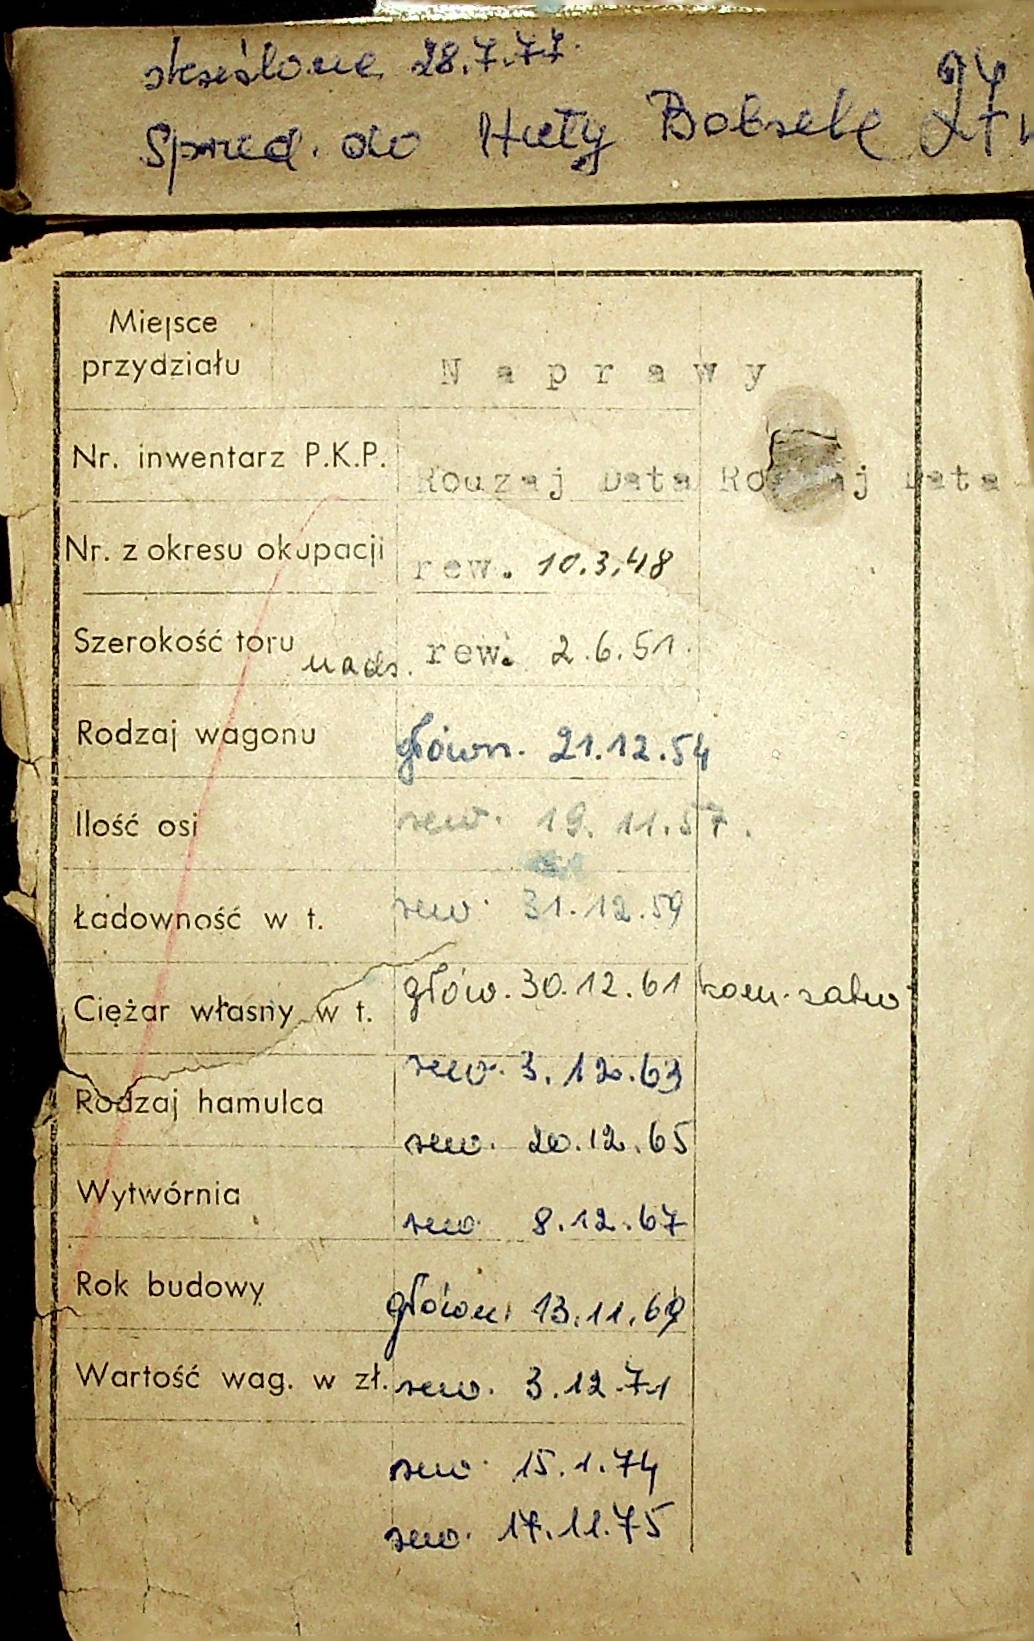 skreślone 28.7.77.
Sprzed. do Huty Bobrek
Miejsce
przydziału
N a p r a w y
Nr. inwentarz P.K.P.
Rodzaj Data Rodzaj Data
Nr. z okresu okupacji
rew. 10.3.48
Szerokość toru
nads. rew. 2.6.51.
Rodzaj wagonu
główn. 21.12.54
Ilość osi
rew. 19.11.57.
Ładowność w t.
rew. 31.12.59
Ciężar własny w t.
głów. 30.12.61
Rodzaj hamulca
rew. 3.12.63
rew. 20.12.65
Wytwórnia
rew. 8.12.67
Rok budowy
główn. 13.11.69
Wartość wag. w zł.
rew. 3.12.71
rew. 15.1.74
rew. 17.11.75